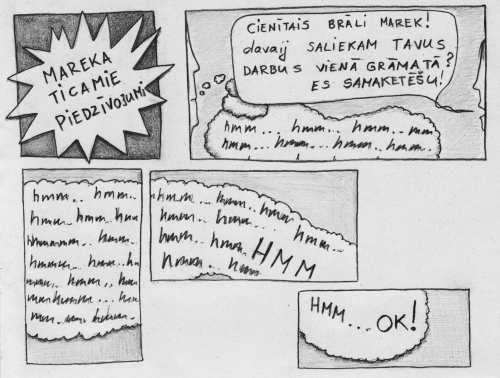 MAREKA
TICAMIE
PIEDZĪVOJUMI
CIENĪTAIS BRĀLI MAREK!
davaij SALIEKAM TAVUS
DARBUS VIENĀ GRĀMATĀ?
ES SAMAKETĒŠU!
hmm... hmm... hmm.. mm
hmm... hmm... hmm.. hmm..
hmm.. hmm..
hmm.. hmm.. hmm
hmmmm.. hmm..
hmmm.. hmm.. h
hmm.. hmm.. hmm
mmhmmm... hm..
mm.. mm. hmm..
hmm... hmm.. hmm
hmm.. hmm... hmm..
hmm.. hmm HMM
hmm... hmm
HMM... OK!